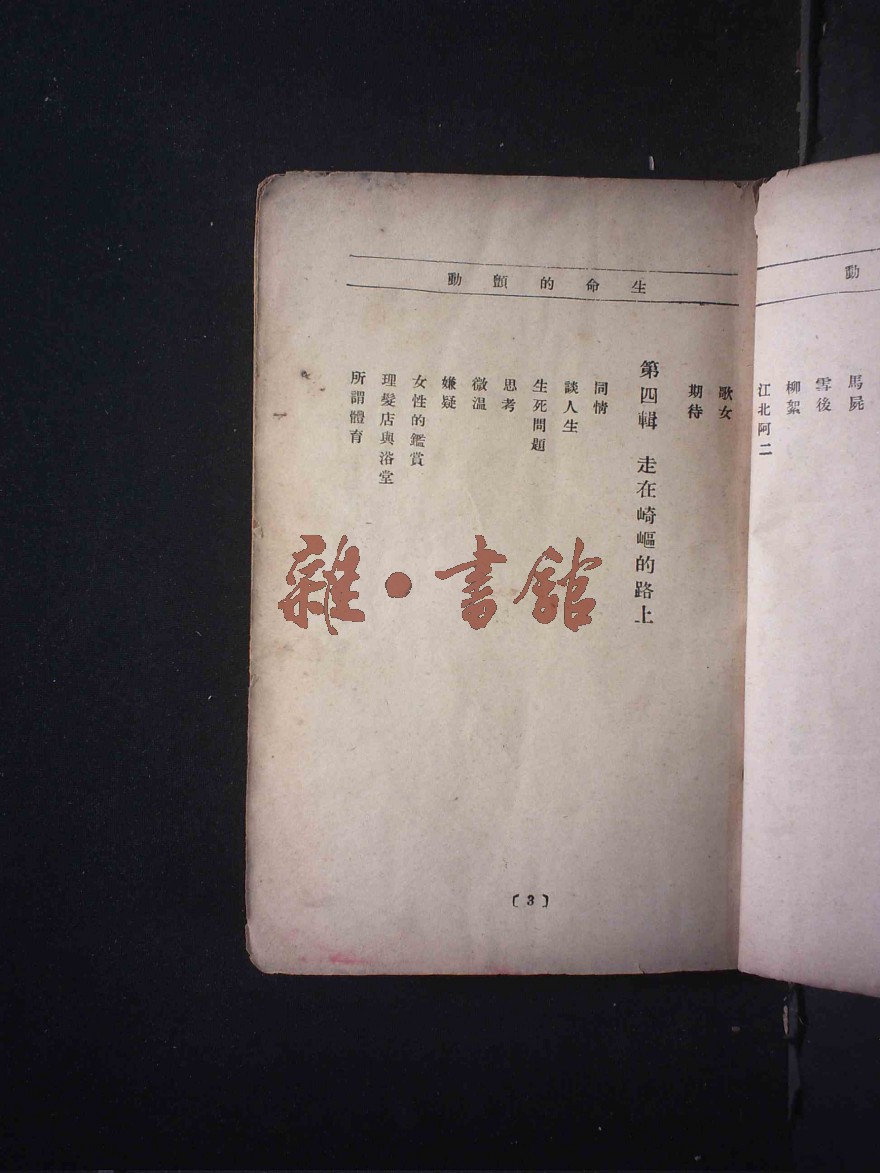 動
馬屍
雪後
柳絮
江北阿二
生命的顫動
歌女
期待
第四輯 走在崎嶇的路上
同情
談人生
生死問題
思考
微溫
嫌疑
女性的鑑賞
理髮店與浴堂
所謂體育
〔3〕
雜·書館